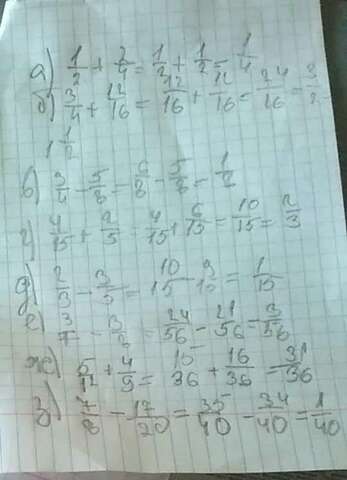 а) 1/2 + 2/4 = 1/2 + 1/2 = 1/4
б) 3/4 + 12/16 = 12/16 + 12/16 = 24/16 = 3/2
1 1/2
в) 3/4 - 5/8 = 6/8 - 5/8 = 1/8
г) 4/15 + 2/5 = 4/15 + 6/15 = 10/15 = 2/3
д) 2/3 - 3/5 = 10/15 - 9/15 = 1/15
е) 3/7 - 3/8 = 24/56 - 21/56 = 3/56
ж) 5/12 + 4/9 = 15/36 + 16/36 = 31/36
з) 7/8 - 17/20 = 35/40 - 34/40 = 1/40